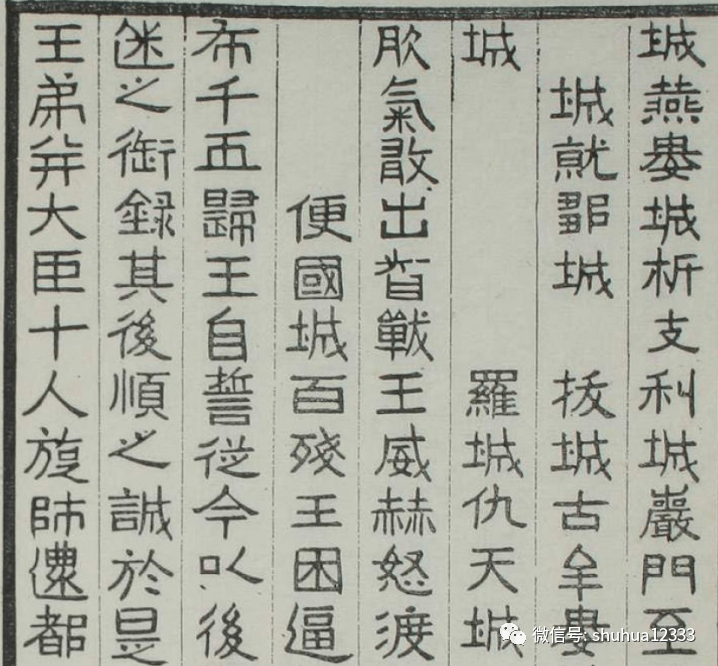 城燕婁城析支利城巖門至
城就鄒城 拔城古牟婁
城 羅城仇天城
氣敢出 戰王威赫怒渡
便國城百殘王困逼
布千匹歸王自誓從今以後
迷之 録其後順之誠於是
王弟并大臣十人旋師還都
微信号: shuhua12333